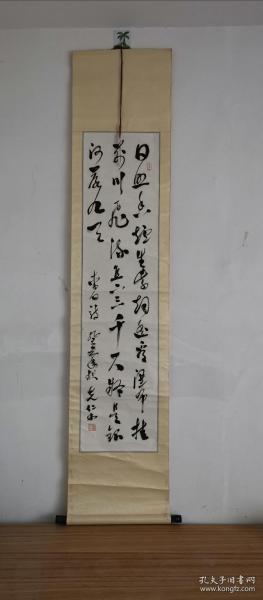 日照香炉生紫烟遥看瀑布挂
前川飞流直下三千尺疑是银
河落九天
李白诗
孔夫子旧书网
www.kongfz.com